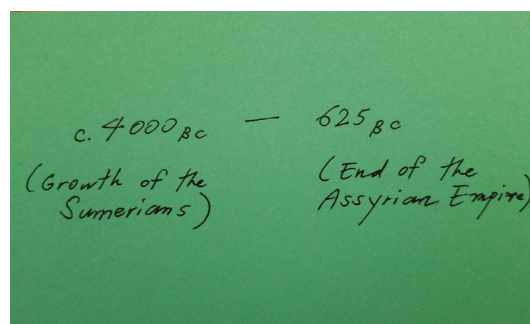 c. 4000 BC — 625 BC
(Growth of the
Sumerians)
(End of the
Assyrian Empire)